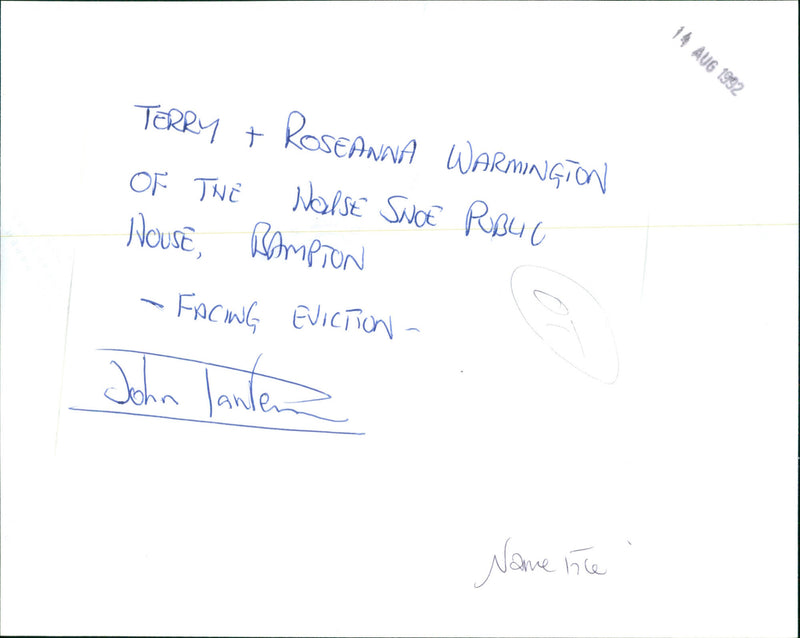 14 AUG 1992
TERRY + ROSEANNA WARMINGTON
OF THE HORSE SHOE PUBLIC
HOUSE, BAMPTON
- FACING EVICTION -
John
Name